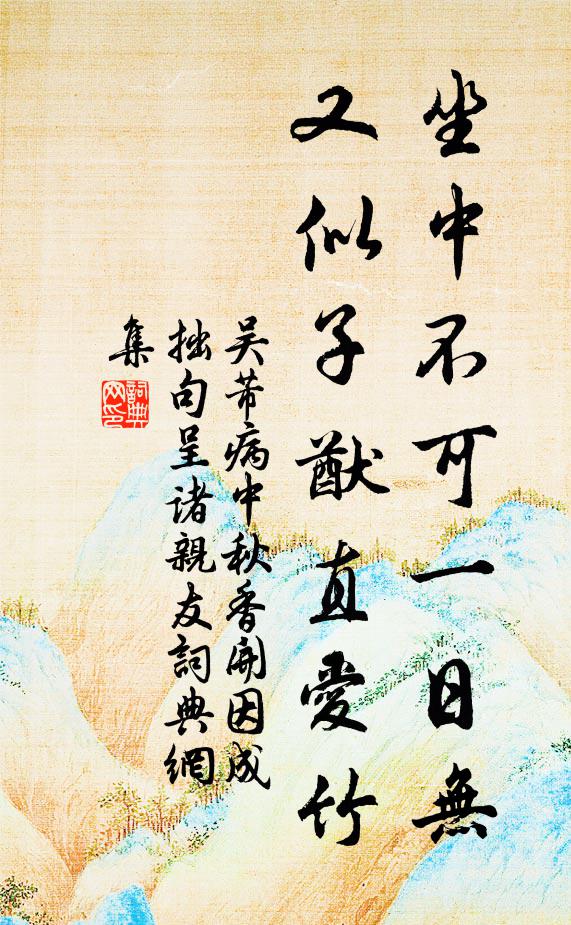 坐中不可一日無
又似子猷直愛竹
吴芾病中秋香開因成
拙句呈诸親友詞典網
集
詞典網印